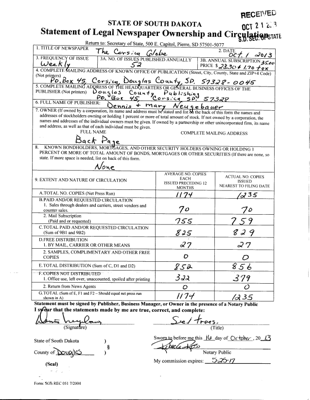 RECEIVED
OCT 21 2
S.D. SEC. OF STATE
STATE OF SOUTH DAKOTA
Statement of Legal Newspaper Ownership and Circulation
Return to: Secretary of State, 500 E. Capitol, Pierre, SD 57501-5077
1. TITLE OF NEWSPAPER The Corsica Globe
2. DATE Oct 1 2013
3. FREQUENCY OF ISSUE Weekly
3A. NO. OF ISSUES PUBLISHED ANNUALLY 52
3B. ANNUAL SUBSCRIPTION PRICE $
4. COMPLETE MAILING ADDRESS OF KNOWN OFFICE OF PUBLICATION (Street, City, County, State and ZIP+4 Code) (Not printers)
P.O. Box 45 Corsica, Douglas County, SD. 57328-0045
5. COMPLETE MAILING ADDRESS OF THE HEADQUARTERS OR GENERAL BUSINESS OFFICES OF THE PUBLISHER (Not printer)
Douglas County Publishing
P.O. Box 45 Corsica, SD 57328
6. FULL NAME OF PUBLISHER: Dennis + Mary Neugebauer
7. OWNER (If owned by a corporation, its name and address must be stated and on the back of this form the names and
addresses of stockholders owning or holding 1 percent or more of total amount of stock. If not owned by a corporation, the
names and addresses of the individual owners must be given. If owned by a partnership or other unincorporated firm, its name
and address, as well as that of each individual must be given.
FULL NAME COMPLETE MAILING ADDRESS
Back Page
8. KNOWN BONDHOLDERS, MORTGAGES, AND OTHER SECURITY HOLDERS OWNING OR HOLDING 1
PERCENT OR MORE OF TOTAL AMOUNT OF BONDS, MORTGAGES OR OTHER SECURITIES (If there are none, so
state. If more space is needed, list on back of this form.
None
9. EXTENT AND NATURE OF CIRCULATION
AVERAGE NO. COPIES EACH ISSUED PRECEDING 12 MONTHS
ACTUAL NO. COPIES ISSUED NEAREST TO FILING DATE
A. TOTAL NO. COPIES (Net Press Run) 1174 1235
B. PAID AND/OR REQUESTED CIRCULATION
1. Sales through dealers and carriers, street vendors and counter sales 70 70
2. Mail Subscription (Paid and/or requested) 755 759
C. TOTAL PAID AND/OR REQUESTED CIRCULATION (Sum of 9B1 and 9B2) 825 829
D. FREE DISTRIBUTION
1. BY MAIL, CARRIER OR OTHER MEANS 27 27
2. SAMPLES, COMPLIMENTARY AND OTHER FREE COPIES 0 0
E. TOTAL DISTRIBUTION (Sum of C, D1 and D2) 852 856
F. COPIES NOT DISTRIBUTED
1. Office use, left over, unaccounted, spoiled after printing 322 379
2. Return from News Agents 0 0
G. TOTAL (Sum of E, F1 and F2 - Should equal net press run shown in A) 1174 1235
Statement must be signed by Publisher, Business Manager, or Owner in the presence of a Notary Public
I swear that the statements made by me are true, correct, and complete:
(Signature) (Title)
State of South Dakota )
County of Douglas )
(Seal)
Sworn to before me this day of October, 2013
Notary Public
My commission expires:
Form: SOS REC 051 7/2004